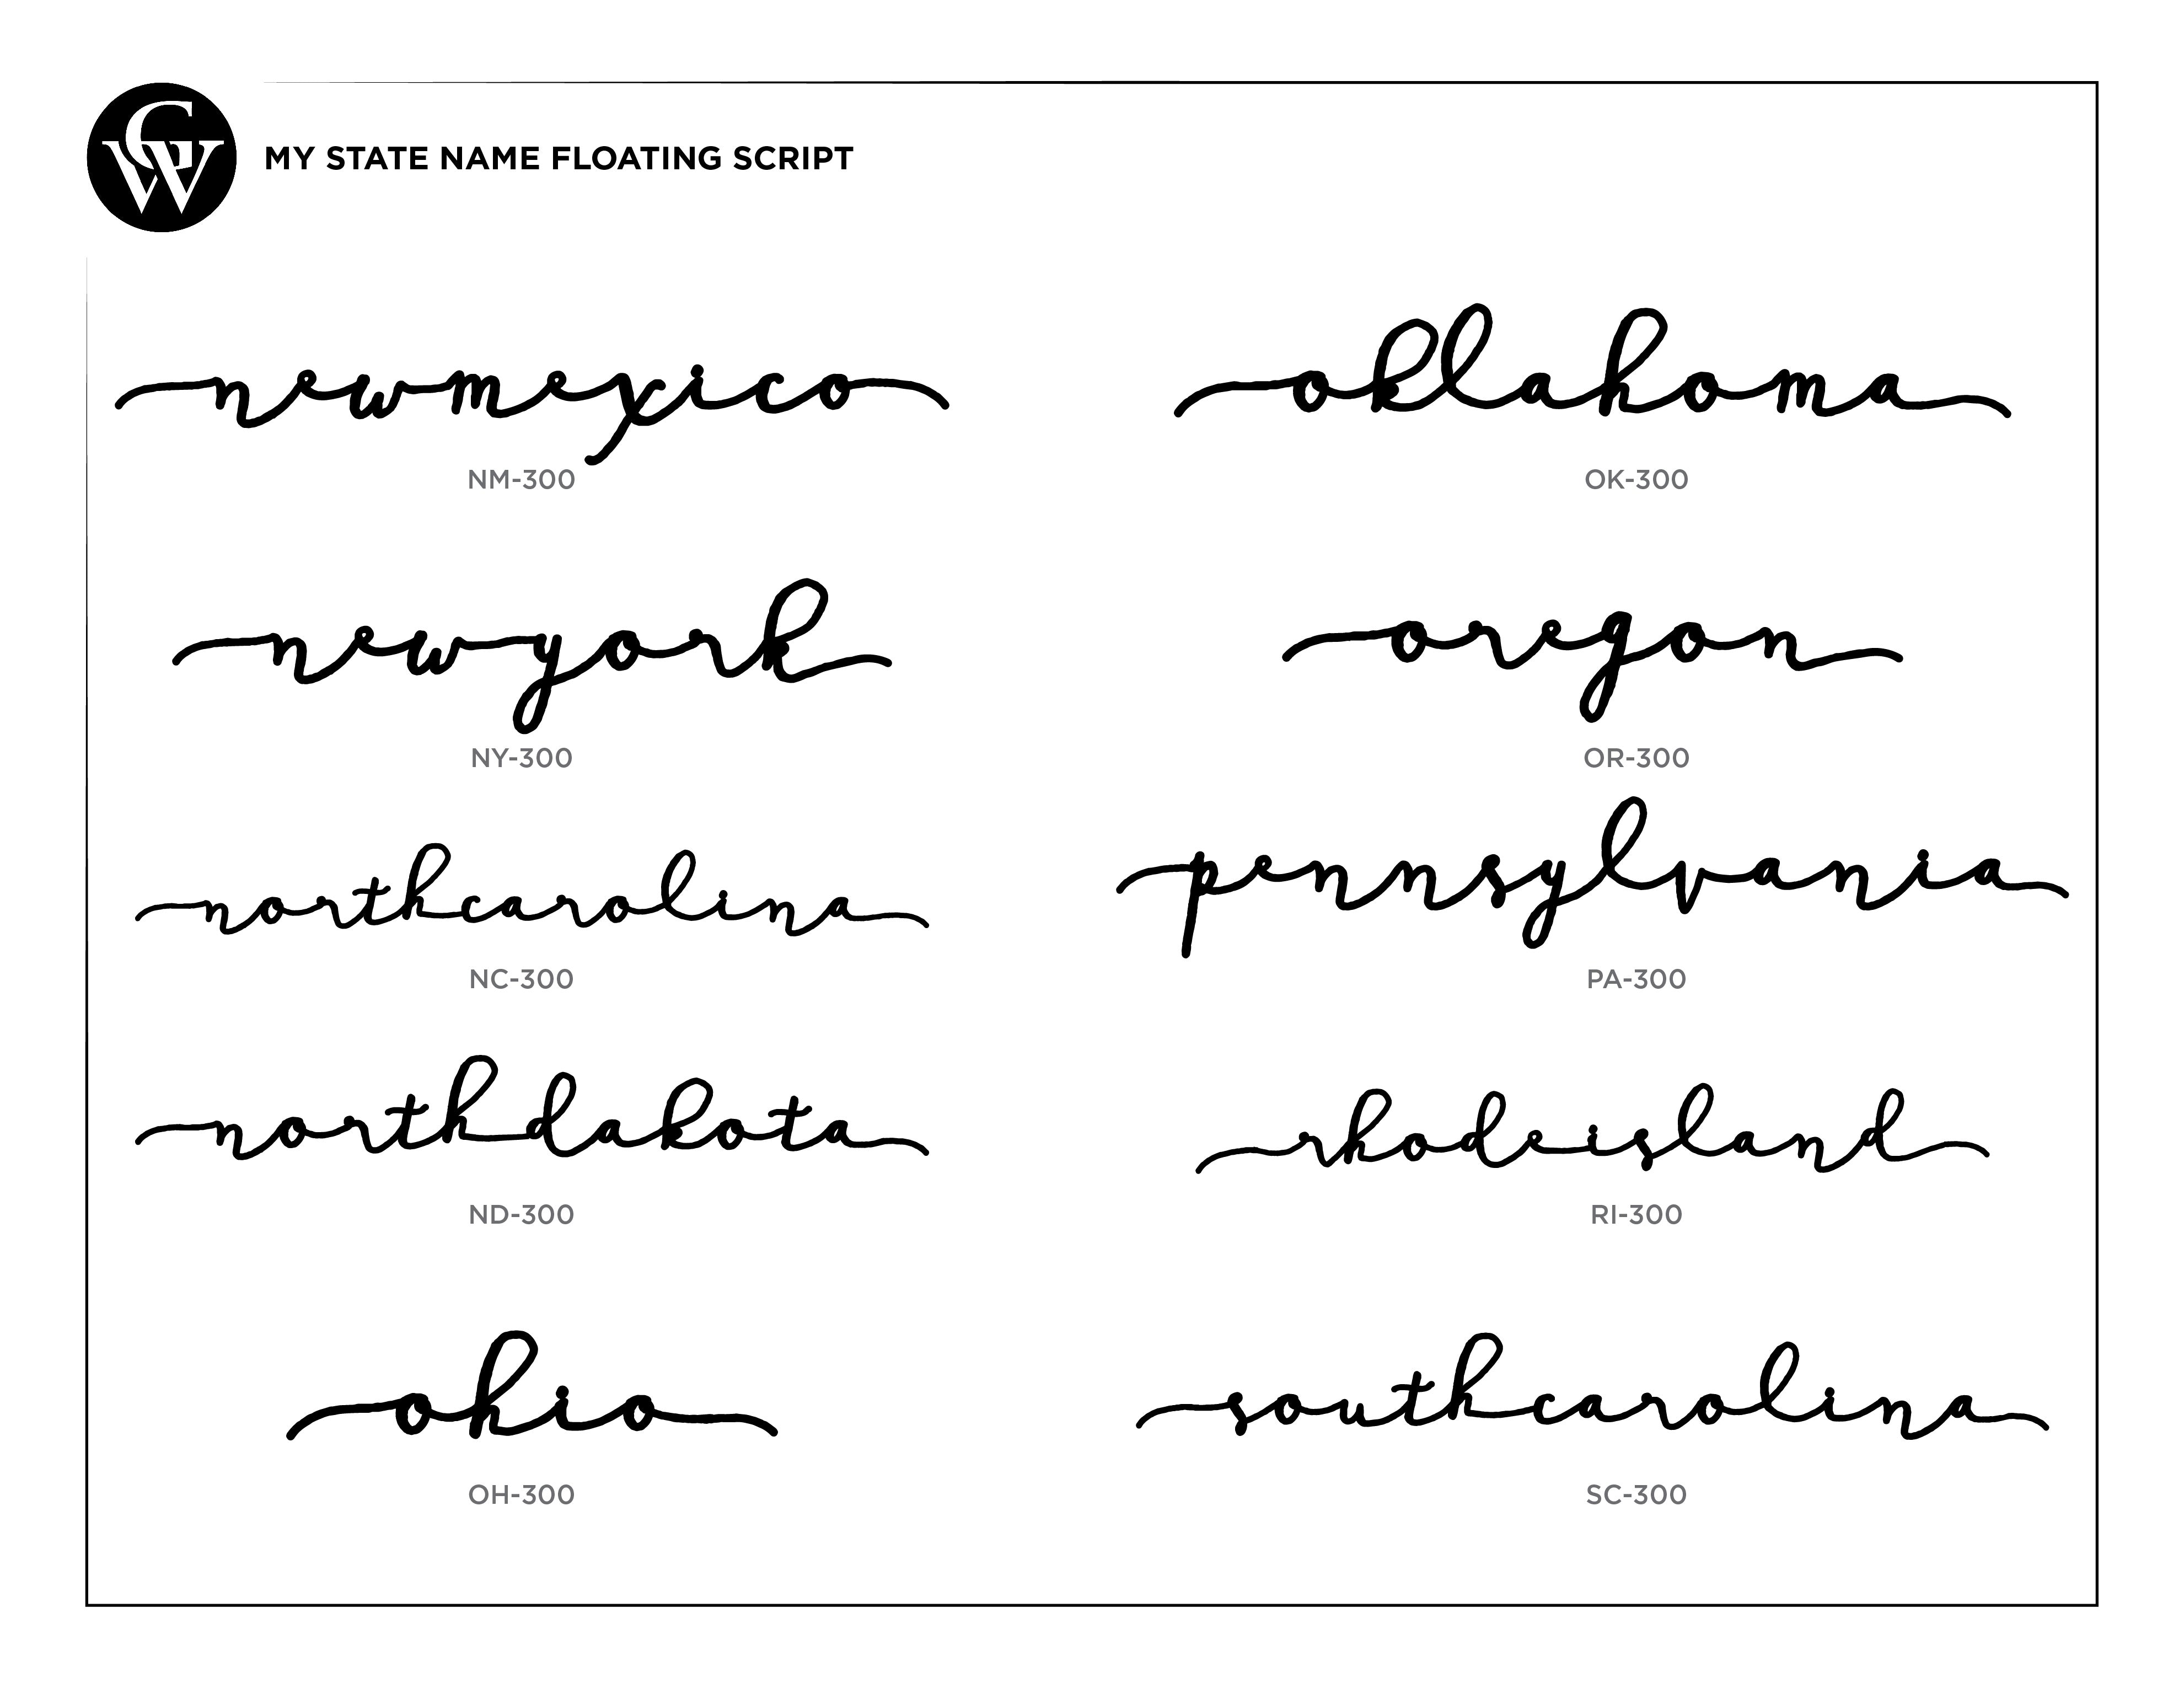 GW
MY STATE NAME FLOATING SCRIPT
newmexico
NM-300
oklahoma
OK-300
newyork
NY-300
oregon
OR-300
northcarolina
NC-300
pennsylvania
PA-300
northdakota
ND-300
rhodeisland
RI-300
ohio
OH-300
southcarolina
SC-300